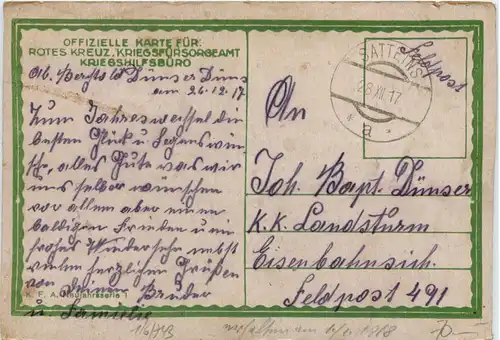 OFFIZIELLE KARTE FÜR
ROTES KREUZ, KRIEGSFÜRSORGEAMT
KRIEGSHILFSBÜRO
Dünser Düns
am 26.12.17
Zum Jahreswechsel die
besten Glück u. Segenswün-
sche, alles Gute was wir
uns selber wünschen
vor allem aber einen
baldigen Frieden u. ein
frohes Wiedersehn nebst
vielen herzlichen Grüßen
von deinem Bruder
u. Familie
K. F. A. Neujahrsserie 1
SATTEINS
28.XII.17
* a *
Feldpost
An
Joh. Bapt. Dünser
K.K. Landsturm
Eisenbahnsich.
Feldpost 491
erhalten am 1918